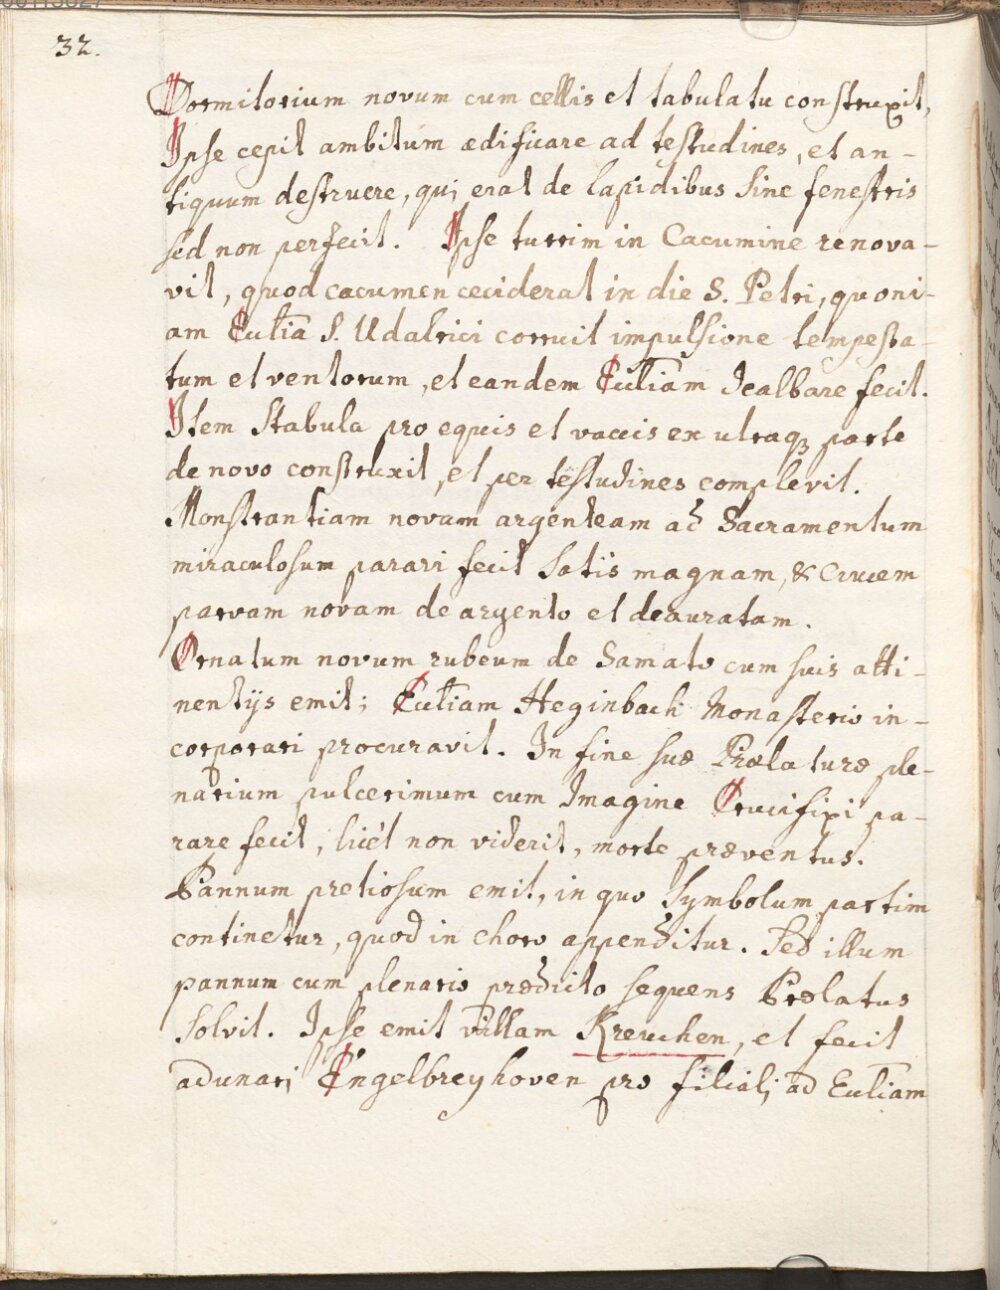 32.
Dormitorium novum cum cellis et tabulatu construxit,
Ipse cepit ambitum ædificare ad testudines, et an-
tiquum destruere, qui erat de lapidibus sine fenestris
sed non perfecit. Ipse turrim in Cacumine renova-
vit, quod cacumen ceciderat in die S. Petri, quoni-
am Ecclia S. Udalrici corruit impulsione tempesta-
tum et ventorum, et eandem Eccliam dealbare fecit.
Item stabula pro equis et vaccis ex utraq3 parte
de novo construxit, et per testudines complevit.
Monstrantiam novam argenteam ad Sacramentum
miraculosum parari fecit satis magnam, & Crucem
parvam novam de argento et deauratam.
Ornatum novum rubeum de Samato cum suis atti-
nentijs emit; Eccliam Heginbach Monasterio in-
corporari procuravit. In fine suæ Prælaturæ ple-
narium pulcerimum cum Imagine Crucifixi pa-
rare fecit, licèt non viderit, morte præventus.
Pannum pretiosum emit, in quo Symbolum partim
continetur, quod in choro appenditur. Sed illum
pannum cum plenario prædicto sequens Prælatus
solvit. Ipse emit villam Kreuchen, et fecit
adunari Engelbreyhoven pro filiali ad Eccliam